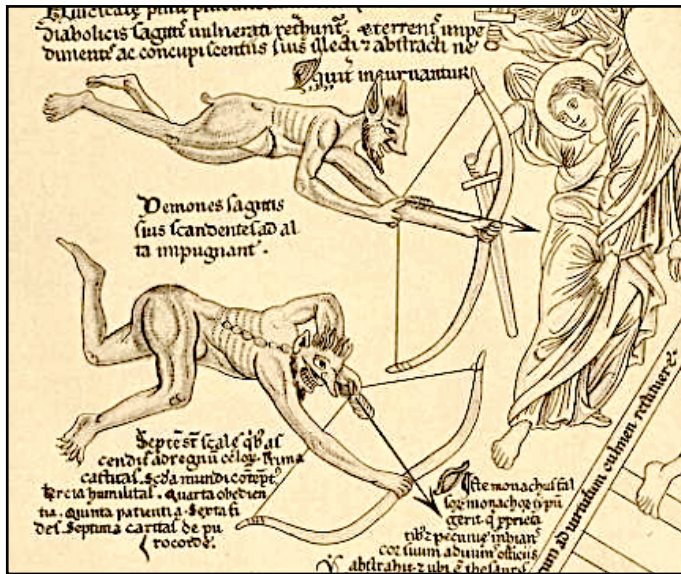 diabolicis sagittˢ vulnerati impe
dimentˢ ac concupiscentiis suis illecti ⁊ abstracti ne
incurvantur
Demones sagittis
suis scandentes ad al
ta impugnant.
Septē st̄ scale qⁱb' as
cendit' ad regnū celoꝝ. Prima
castitas. Scda mundi cōtēpt'
tercia humilitas. Quarta obedien
tia. Quinta patientia. Sexta fi
des. Septima caritas de pu
ro corde.
Iste monachus fal
sos monachos
gerit q'
pecunie inhian
cor suum a divinis officiis
abstrahit ⁊ ubi ē thesaurˢ
um ad virtutum culmen retinere